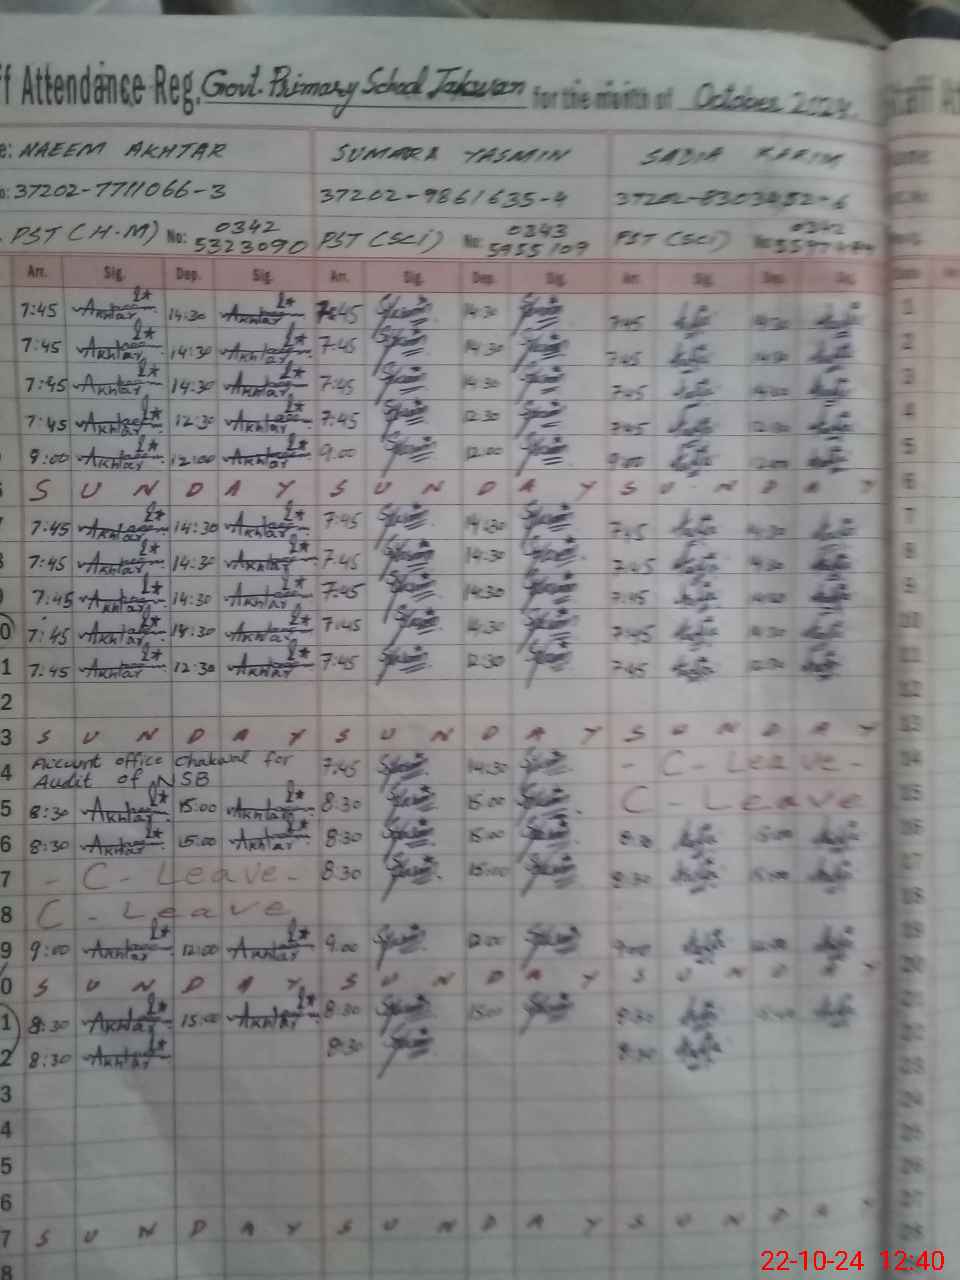 ff Attendance Reg. Govt. Primary School for the month of October 2024.
e: NAEEM AKHTAR SUMARA YASMIN SADIA KARIM
o: 37202-7711066-3 37202-9861635-4
PST (H.M) No: 0342 5323090 PST (SCI) No: 0343 5955109 PST (SCI) No: 0342
Arr. Sig. Dep. Sig. Arr. Sig. Dep. Sig. Arr. Sig. Dep. Sig.
7:45 Akhtar 14:30 Akhtar 7:45 14:30 7:45 14:30 1
7:45 Akhtar 14:30 Akhtar 7:45 14:30 7:45 14:30 2
7:45 Akhtar 14:30 Akhtar 7:45 14:30 7:45 3
7:45 Akhtar 12:30 Akhtar 7:45 12:30 7:45 12:30 4
9:00 Akhtar 12:00 Akhtar 9:00 12:00 9:00 12:00 5
S U N D A Y S U N D A Y S U N D A Y 6
7:45 Akhtar 14:30 Akhtar 7:45 14:30 7:45 14:30 7
7:45 Akhtar 14:30 Akhtar 7:45 14:30 7:45 14:30 8
7:45 Akhtar 14:30 Akhtar 7:45 14:30 7:45 14:30 9
0 7:45 Akhtar 14:30 Akhtar 7:45 14:30 7:45 14:30 10
1 7:45 Akhtar 12:30 Akhtar 7:45 12:30 7:45 12:30 11
2 12
3 S U N D A Y S U N D A Y S U N D A Y 13
4 Account office Chakwal for Audit of NSB 7:45 14:30 - C - Leave - 14
5 8:30 Akhtar 15:00 Akhtar 8:30 15:00 C - Leave 15
6 8:30 Akhtar 15:00 Akhtar 8:30 15:00 8:30 15:00 16
7 - C - Leave - 8:30 15:00 8:30 15:00 17
8 C - Leave 18
9 9:00 Akhtar 12:00 Akhtar 9:00 12:00 9:00 12:00 19
0 S U N D A Y S U N D A Y S U N D A Y 20
1 8:30 Akhtar 15:00 Akhtar 8:30 15:00 8:30 15:00 21
2 8:30 Akhtar 8:30 8:30
3
4
5
6
7 S U N D A Y S U N D A Y S U N D A Y
8
22-10-24 12:40